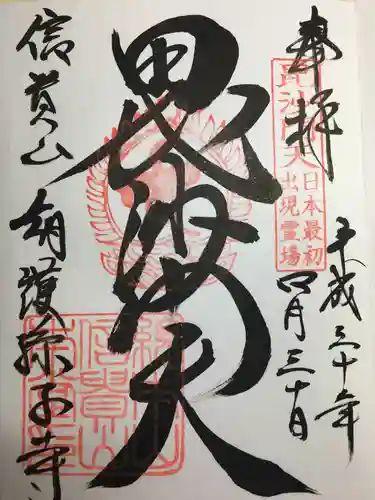 奉拝
毘沙門天
日本最初
出現霊場
平成三十年
四月三十日
毘沙門天
信貴山
朝護孫子寺